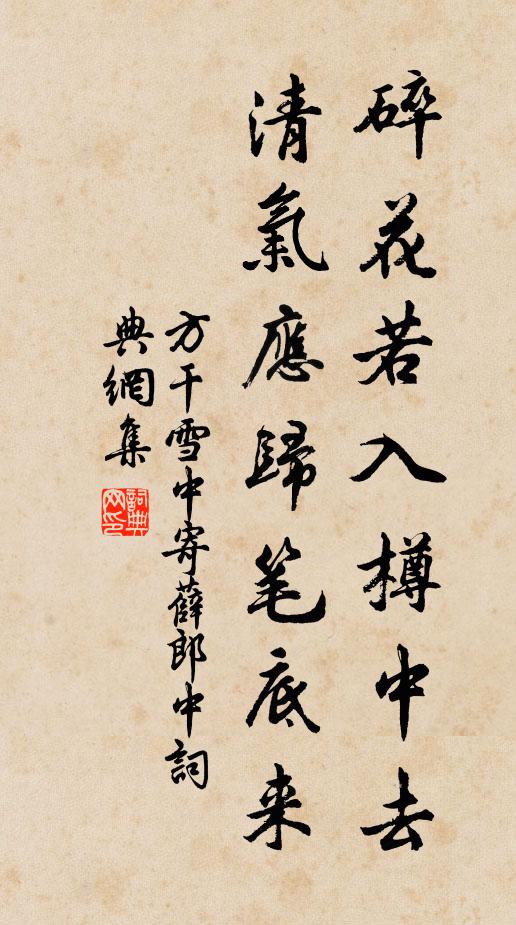 碎花若入樽中去
清氣應歸笔底来
方干雪中寄薛郎中詞
典網集
詞典
网印